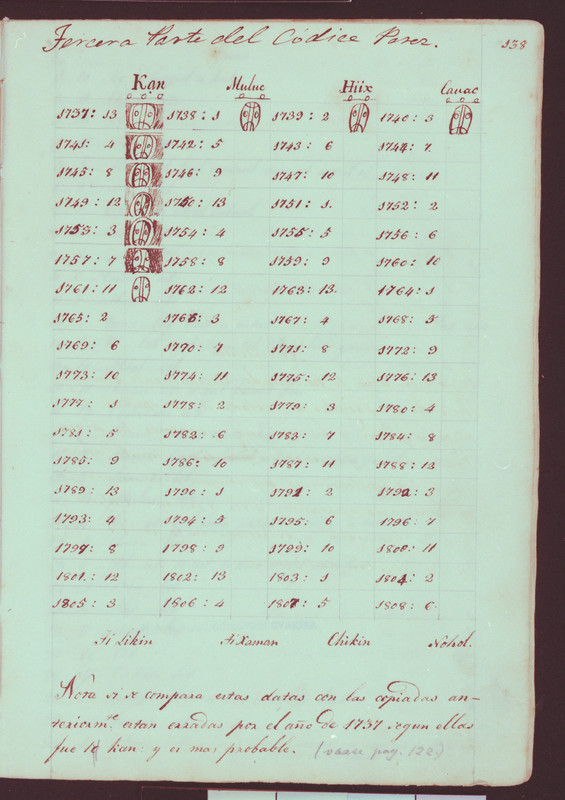 Tercera Parte del Códice Perez. 138
Kan Muluc Hiix Cauac
1737: 13 1738: 1 1739: 2 1740: 3
1741: 4 1742: 5 1743: 6 1744: 7
1745: 8 1746: 9 1747: 10 1748: 11
1749: 12 1750: 13 1751: 1 1752: 2
1753: 3 1754: 4 1755: 5 1756: 6
1757: 7 1758: 8 1759: 9 1760: 10
1761: 11 1762: 12 1763: 13 1764: 1
1765: 2 1766: 3 1767: 4 1768: 5
1769: 6 1770: 7 1771: 8 1772: 9
1773: 10 1774: 11 1775: 12 1776: 13
1777: 1 1778: 2 1779: 3 1780: 4
1781: 5 1782: 6 1783: 7 1784: 8
1785: 9 1786: 10 1787: 11 1788: 12
1789: 13 1790: 1 1791: 2 1792: 3
1793: 4 1794: 5 1795: 6 1796: 7
1797: 8 1798: 9 1799: 10 1800: 11
1801: 12 1802: 13 1803: 1 1804: 2
1805: 3 1806: 4 1807: 5 1808: 6
Likin Xaman Chikin Nohol.
Nota si se compara estas datas con las copiadas an-
teriormte. estan erradas por el año de 1737 segun ellas
fue kan: y es mas probable. (vease pag. 122.)